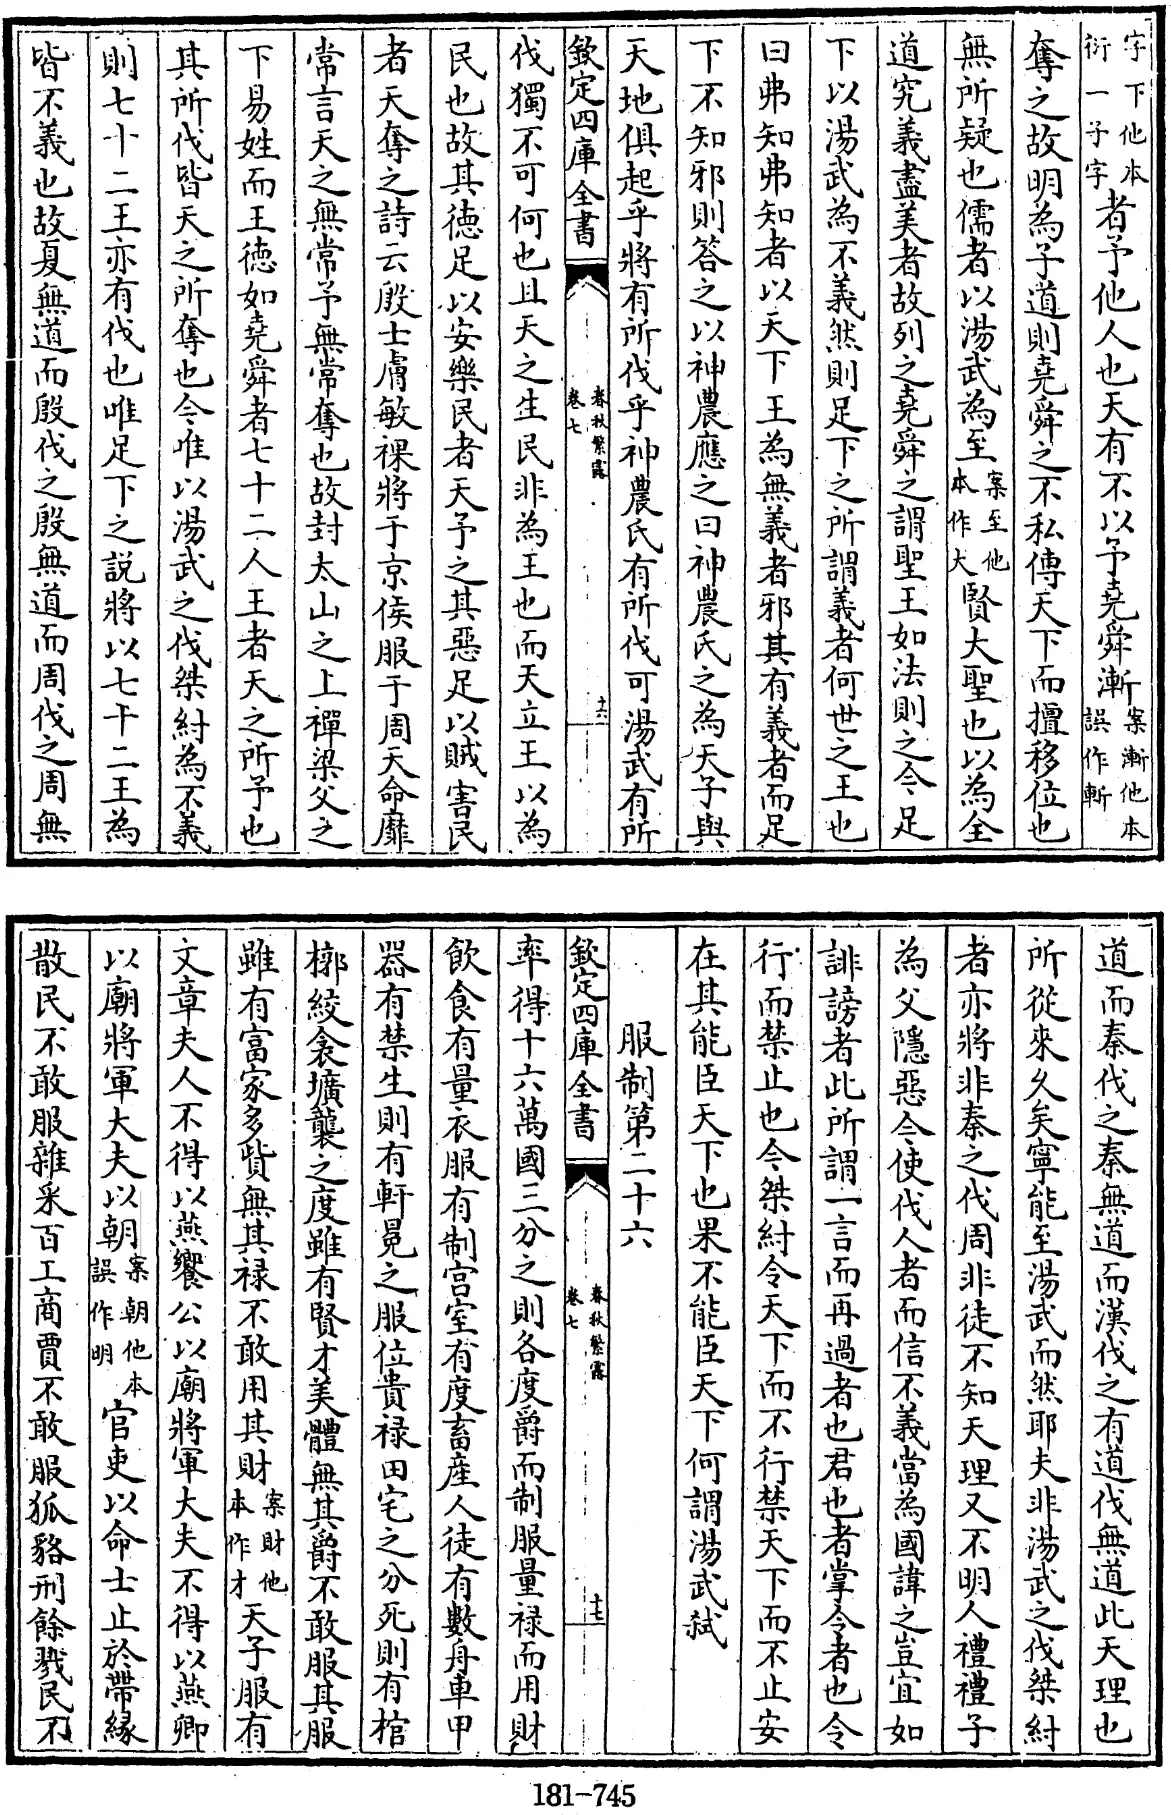 字下他本
衍一子字者予他人也天有不以予堯舜漸案漸他本
誤作斬
奪之故明為子道則堯舜之不私傳天下而擅移位也
無所疑也儒者以湯武為至案至他
本作大賢大聖也以為全
道究義盡美者故列之堯舜之謂聖王如法則之今足
下以湯武為不義然則足下之所謂義者何世之王也
曰弗知弗知者以天下王為無義者邪其有義者而足
下不知邪則答之以神農應之曰神農氏之為天子與
天地俱起乎將有所伐乎神農氏有所伐可湯武有所
欽定四庫全書
春秋繁露
卷七
十六
伐獨不可何也且天之生民非為王也而天立王以為
民也故其德足以安樂民者天予之其惡足以賊害民
者天奪之詩云殷士膚敏祼將于京侯服于周天命靡
常言天之無常予無常奪也故封太山之上禪梁父之
下易姓而王德如堯舜者七十二人王者天之所予也
其所伐皆天之所奪也今唯以湯武之伐桀紂為不義
則七十二王亦有伐也唯足下之說將以七十二王為
皆不義也故夏無道而殷伐之殷無道而周伐之周無
道而秦伐之秦無道而漢伐之有道伐無道此天理也
所從來久矣寧能至湯武而然耶夫非湯武之伐桀紂
者亦將非秦之伐周非徒不知天理又不明人禮禮子
為父隱惡今使伐人者而信不義當為國諱之豈宜如
誹謗者此所謂一言而再過者也君也者掌令者也令
行而禁止也今桀紂令天下而不行禁天下而不止安
在其能臣天下也果不能臣天下何謂湯武弒
服制第二十六
欽定四庫全書
春秋繁露
卷七
十七
率得十六萬國三分之則各度爵而制服量祿而用財
飲食有量衣服有制宮室有度畜產人徒有數舟車甲
器有禁生則有軒冕之服位貴祿田宅之分死則有棺
槨絞衾壙襲之度雖有賢才美體無其爵不敢服其服
雖有富家多貲無其祿不敢用其財案財他
本作才天子服有
文章夫人不得以燕饗公以廟將軍大夫不得以燕卿
以廟將軍大夫以朝案朝他本
誤作明官吏以命士止於帶緣
散民不敢服雜采百工商賈不敢服狐貉刑餘戮民不
181-745